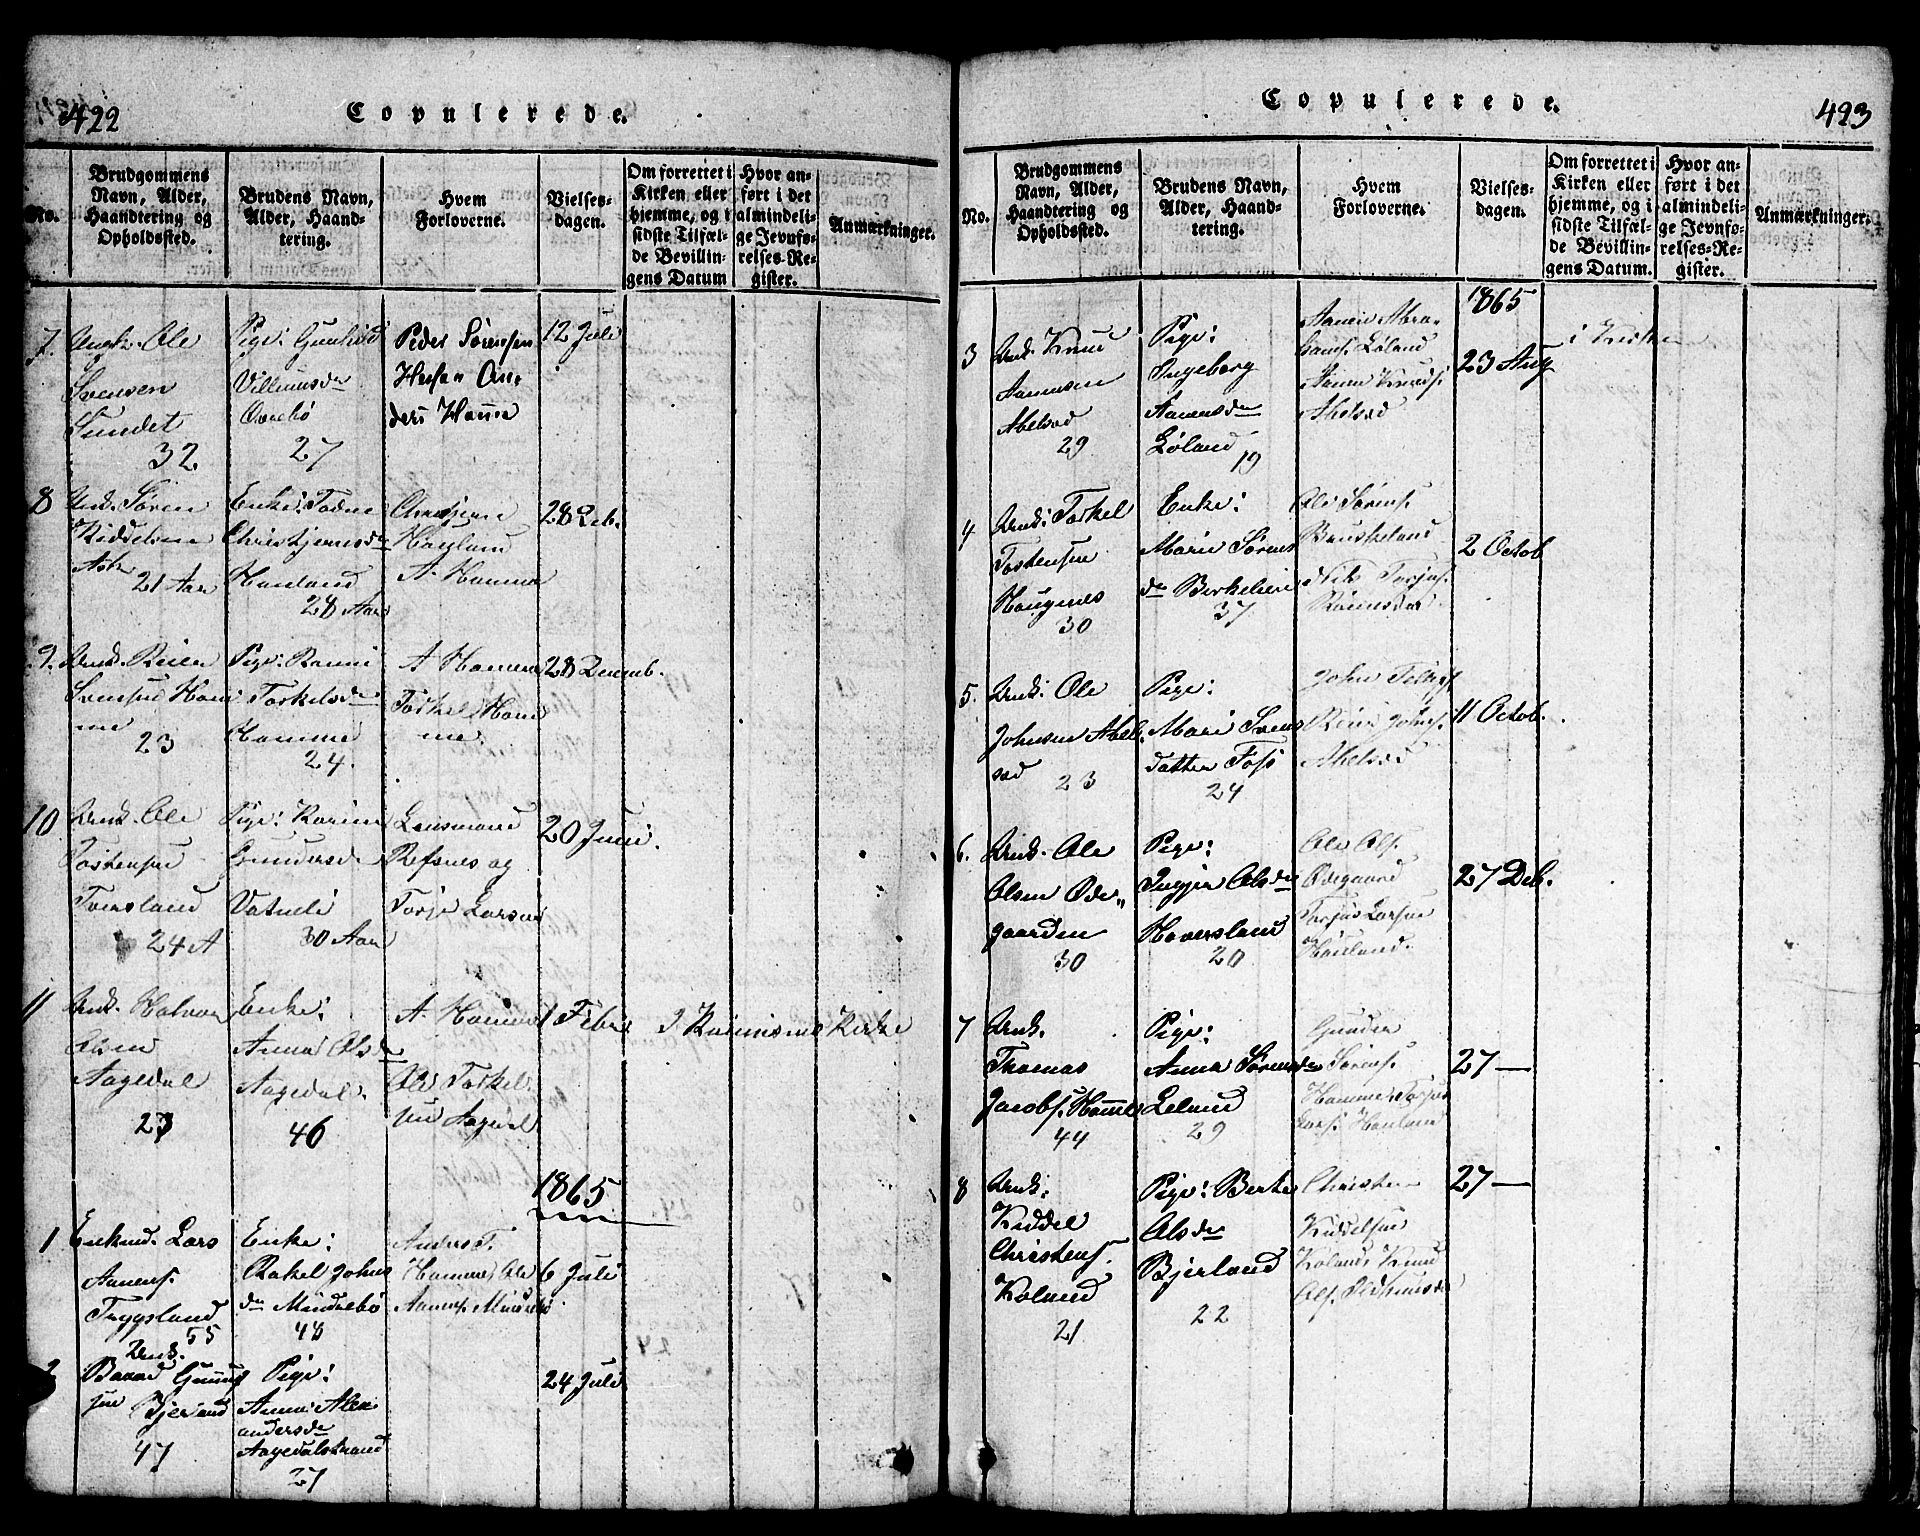 422
Copulerede.
No.
Brudgommens Navn, Alder, Haandtering og Opholdssted.
Brudens Navn, Alder, Haandtering.
Hvem Forloverne.
Vielsesdagen.
Om forrettet i Kirken eller hjemme, og i sidste Tilfælde Bevillingens Datum
Hvor anført i det almindelige Jevnførelses-Register.
Anmærkninger.
7. Ungk. Ole
Svensen
Sundet
32
Pige: Gunhild
Villumsdr
Ovrebø
27
Peder Sørensen
Anders Homme
12 Juli
8 Unk. Søren
Kiddelsen
Ask
21 Aar
Enke: Todne
Christjernsdr
Honland
28 Aar
Honland
A. Homme
28 Deb.
9. Unk. Reier
Svensen Homme
23
Pige: Ronni
Torkelsdr
Homme
24.
A Homme
Torkel Homme.
28 Decemb.
10 Unk. Ole
Tostensen
24 A
Pige: Karine
Gundersdr
Vatneli
30 Aar
Lensmand
Refsnes og
Torje Larsen
20 Juni.
11 Unk. Halvor
Olsen
Aagedal
23
Enke:
Anna Olsdr
Aagedal.
46
A. Homme
Ole Torkelsen Aagedal
1 Febr
I Kirke
1865
1 Enkmd. Lars
Aanens.
Tryggsland
55
Enke:
Rakel Johnsdr Mindrebø
48
Anders T.
Homme, Ole
Aanens. Mindrebø
6 Juli
Unk.
Bjerland
47
Pige:
Anna Alexandersdr
Aagedalstrand
27
24 Juli
Copulerede.
423
No.
Brudgommens Navn, Alder, Haandtering og Opholdssted.
Brudens Navn, Alder, Haandtering.
Hvem Forloverne.
Vielsesdagen.
Om forrettet i Kirken eller hjemme, og i sidste Tilfælde Bevillingens Datum.
Hvor anført i det almindelige Jevnførelses-Register.
Anmærkninger.
1865
3 Unk. Knud
Aanensen
Abelsod
29
Pige:
Ingeborg
Aanensdr
Løland
19
Aanen Abrahams. Løland
Aanen Knuds.
Abelsod
23 Aug
i Kirken
4 Unk: Torkel
Tostensen
Haugenes
30
Enke:
Marie Sørensdr Birkelien
37
Ole Sørens.
2 Octob
5. Unk. Ole
Johnsen Abelsod
23
Pige:
Mari Svensdatter Foss
24
John
Johns.
Abelsod
11 Octob.
6. Unk. Ole
Olsen Ødegaarden
30
Pige:
Ingjer Olsdr
Haversland
20
Ole Ols.
Ødegaard
Torjus Larsen
Honland.
27 Deb.
7 Unk.
Thomas
Jacobs. Homme
44
Pige:
Anna Sørensdr
Leland
29
Gunder
Sørens.
Homme, Torjus
Lars. Honland
27 —
8 Unk.
Kiddel
Christens.
Koland
21
Pige: Berte
Olsdr
Bjerland
22
Christen
Kiddelsen
Koland, Knud
27 —